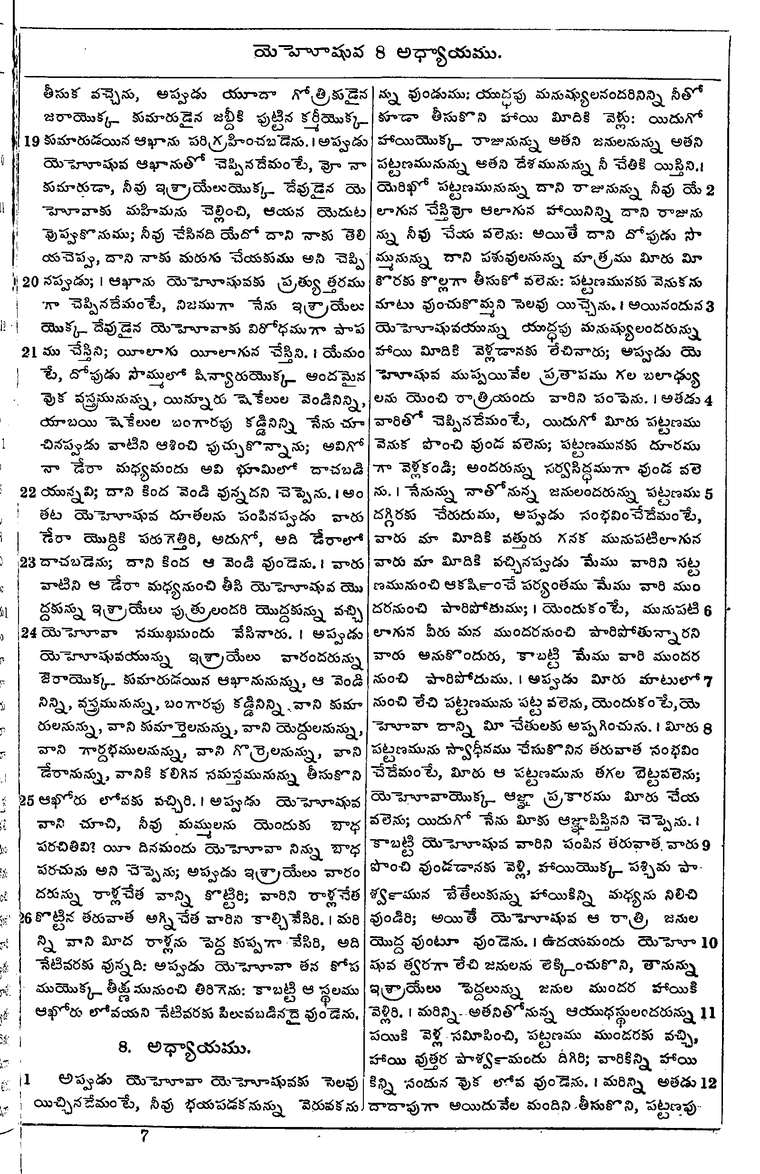 యెహోషువ 8 అధ్యాయము.
తీసుక వచ్చెను, అప్పుడు యూదా గోత్రికుడైన
జరాయొక్క కుమారుడైన జబ్దీకి పుట్టిన కర్మీయొక్క
19 కుమారుడయిన ఆఖాను పరిగ్రహించబడెను. । అప్పుడు
యెహోషువ ఆఖానుతో చెప్పినదేమంటే, వో నా
కుమారుడా, నీవు ఇశ్రాయేలుయొక్క దేవుడైన యె
హోవాకు మహిమను చెల్లించి, ఆయన యెదుట
వొప్పుకొనుము; నీవు చేసినది యేదో దాని నాకు తెలి
యచెప్పు, దాని నాకు మరుగు చేయకుము అని చెప్పి
20 నప్పుడు; । ఆఖాను యెహోషువకు ప్రత్యుత్తరము
గా చెప్పినదేమంటే, నిజముగా నేను ఇశ్రాయేలు
యొక్క దేవుడైన యెహోవాకు విరోధముగా పాప
21 ము చేస్తిని; యీలాగు యీలాగున చేస్తిని. । యేమం
టే, దోపుడు సొమ్ములో షిన్యారుయొక్క అందమైన
వొక వస్త్రమునున్ను, యిన్నూరు షెకేలుల వెండినిన్ని,
యాబయి షెకేలుల బంగారపు కడ్డినిన్ని నేను చూ
చినప్పుడు వాటిని ఆశించి పుచ్చుకొన్నాను; అవిగో
నా డేరా మధ్యమందు అవి భూమిలో దాచబడి
22 యున్నవి; దాని కింద వెండి వున్నదని చెప్పెను. । అం
తట యెహోషువ దూతలను పంపినప్పుడు వారు
డేరా యొద్దికి పరుగెత్తిరి, అదుగో, అది డేరాలో
23 దాచబడెను; దాని కింద ఆ వెండి వుండెను. । వారు
వాటిని ఆ డేరా మధ్యనుంచి తీసి యెహోషువ యొ
ద్దకున్ను ఇశ్రాయేలు పుత్రులందరి యొద్దకున్ను వచ్చి
24 యెహోవా సముఖమందు వేసినారు. । అప్పుడు
యెహోషువయున్ను ఇశ్రాయేలు వారందరున్ను
జెరాయొక్క కుమారుడయిన ఆఖానునున్ను, ఆ వెండి
నిన్ని, వస్త్రమునున్ను, బంగారపు కడ్డినిన్ని వాని కుమా
రులనున్ను, వాని కుమార్తెలనున్ను, వాని యెద్దులనున్ను,
వాని గార్దభములనున్ను, వాని గొర్రెలనున్ను, వాని
డేరానున్ను, వానికి కలిగిన సమస్తమునున్ను తీసుకొని
25 ఆఖోరు లోవకు వచ్చిరి. । అప్పుడు యెహోషువ
వాని చూచి, నీవు మమ్ములను యెందుకు బాధ
పరచితివి? యీ దినమందు యెహోవా నిన్ను బాధ
పరచును అని చెప్పెను; అప్పుడు ఇశ్రాయేలు వారం
దరున్ను రాళ్లచేత వాన్ని కొట్టిరి; వారిని రాళ్లచేత
26 కొట్టిన తరువాత అగ్నిచేత వారిని కాల్చివేసిరి. । మరి
న్ని వాని మీద రాళ్లను పెద్ద కుప్పగా వేసిరి, అది
నేటివరకు వున్నది: అప్పుడు యెహోవా తన కోప
ముయొక్క తీక్ష్ణమునుంచి తిరిగెను: కాబట్టి ఆ స్థలము
ఆఖోరు లోవయని నేటివరకు పిలువబడినదై వుండెను.
8. అధ్యాయము.
1 అప్పుడు యెహోవా యెహోషువకు సెలవు
యిచ్చినదేమంటే, నీవు భయపడకనున్ను వెరువకను
న్ను వుండుము; యుద్ధపు మనుష్యులనందరినిన్ని నీతో
కూడా తీసుకొని హాయి మీదికి వెళ్లు: యిదుగో
హాయియొక్క రాజునున్ను అతని జనులనున్ను అతని
పట్టణమునున్ను అతని దేశమునున్ను నీ చేతికి యిస్తిని. ।
యెరిఖో పట్టణమునున్ను దాని రాజునున్ను నీవు యే 2
లాగున చేస్తివో ఆలాగున హాయినిన్ని దాని రాజును
న్ను నీవు చేయ వలెను: అయితే దాని దోపుడు సొ
మ్మునున్ను దాని పశువులనున్ను మాత్రము మీరు మీ
కొరకు కొల్లగా తీసుకో వలెను: పట్టణమునకు వెనుకను
మాటు వుంచుకొమ్మని సెలవు యిచ్చెను. । అయినందున 3
యెహోషువయున్ను యుద్ధపు మనుష్యులందరున్ను
హాయి మీదికి వెళ్లడానకు లేచినారు; అప్పుడు యె
హోషువ ముప్పయివేల ప్రతాపము గల బలాఢ్యు
లను యెంచి రాత్రియందు వారిని పంపెను. । అతడు 4
వారితో చెప్పినదేమంటే, యిదుగో మీరు పట్టణము
వెనుక పొంచి వుండ వలెను; పట్టణమునకు దూరము
గా వెళ్లకండి; అందరున్ను సర్వసిద్ధముగా వుండ వలె
ను. । నేనున్ను నాతోనున్న జనులందరున్ను పట్టణము 5
దగ్గిరకు చేరుదుము, అప్పుడు సంభవించేదేమంటే,
వారు మా మీదికి వత్తురు గనక మునుపటిలాగున
వారు మా మీదికి వచ్చినప్పుడు మేము వారిని పట్ట
ణమునుంచి ఆకర్షించే పర్యంతము మేము వారి ముం
దరనుంచి పారిపోదుము; । యెందుకంటే, మునుపటి 6
లాగున వీరు మన ముందరనుంచి పారిపోతున్నారని
వారు అనుకొందురు, కాబట్టి మేము వారి ముందర
నుంచి పారిపోదుము. । అప్పుడు మీరు మాటులో 7
నుంచి లేచి పట్టణమును పట్ట వలెను, యెందుకంటే, యె
హోవా దాన్ని మీ చేతులకు అప్పగించును. । మీరు 8
పట్టణమును స్వాధీనము చేసుకొనిన తరువాత సంభవిం
చేదేమంటే, మీరు ఆ పట్టణమును తగల బెట్టవలెను;
యెహోవాయొక్క ఆజ్ఞా ప్రకారము మీరు చేయ
వలెను; యిదుగో నేను మీకు ఆజ్ఞాపిస్తినని చెప్పెను. ।
కాబట్టి యెహోషువ వారిని పంపిన తరువాత వారు 9
పొంచి వుండడానకు వెళ్లి, హాయియొక్క పశ్చిమ పా-
ర్శ్వమున బేతేలుకున్ను హాయికిన్ని మధ్యను నిలిచి
వుండిరి; అయితే యెహోషువ ఆ రాత్రి జనుల
యొద్ద వుంటూ వుండెను. । ఉదయమందు యెహో 10
షువ త్వరగా లేచి జనులను లెక్కించుకొని, తానున్ను
ఇశ్రాయేలు పెద్దలున్ను జనుల ముందర హాయికి
వెళ్లిరి. । మరిన్ని అతనితోనున్న ఆయుధస్థులందరున్ను 11
పయికి వెళ్లి సమీపించి, పట్టణము ముందరకు వచ్చి,
హాయి వుత్తర పార్శ్వమందు దిగిరి; వారికిన్ని హాయి
కిన్ని సందున వొక లోవ వుండెను. । మరిన్ని అతడు 12
దాదాపుగా అయిదువేల మందిని తీసుకొని, పట్టణపు
7